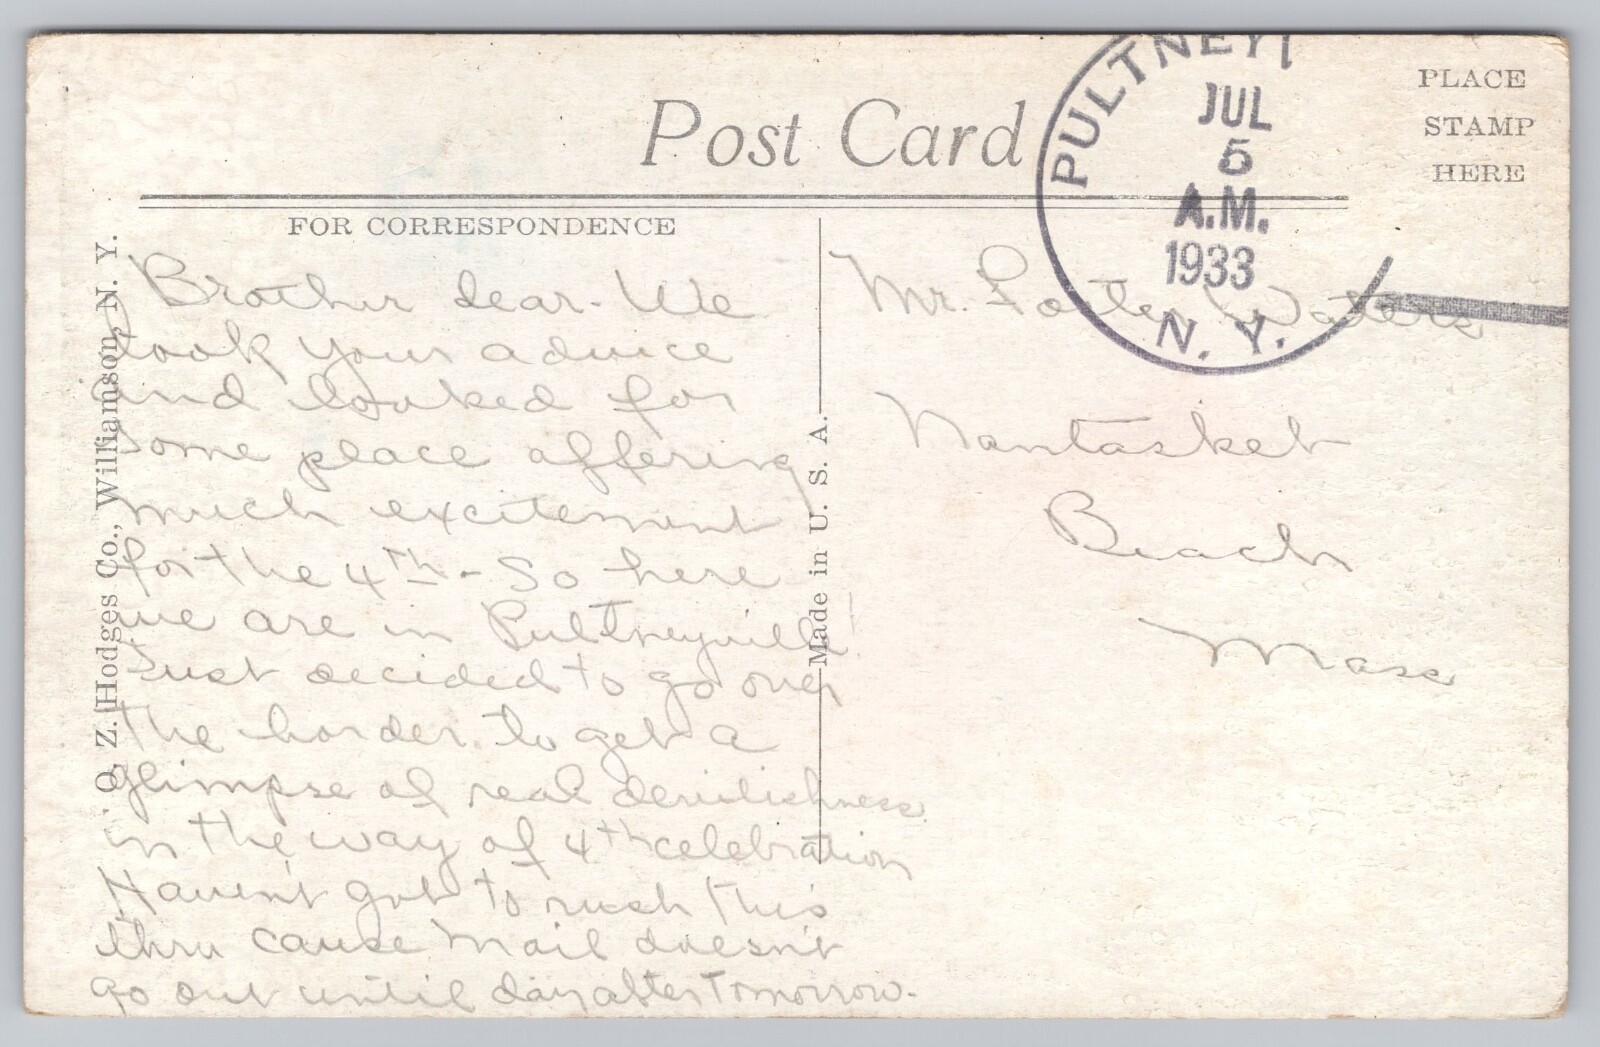 Post Card
PLACE
STAMP
HERE
PULTNEYV
JUL
5
A.M.
1933
N. Y.
FOR CORRESPONDENCE
O. Z. Hodges Co., Williamson, N. Y.
Made in U. S. A.
Brother dear - We
took your advice
and looked for
some place offering
much excitement
for the 4th - So here
we are in Pultneyville!
Just decided to go over
the border to get a
glimpse of real devilishness
in the way of 4th celebration
Haven't got to rush this
thru cause mail doesn't
go out until day after tomorrow.
Mr. Foster Waters
Nantasket
Beach
Mass